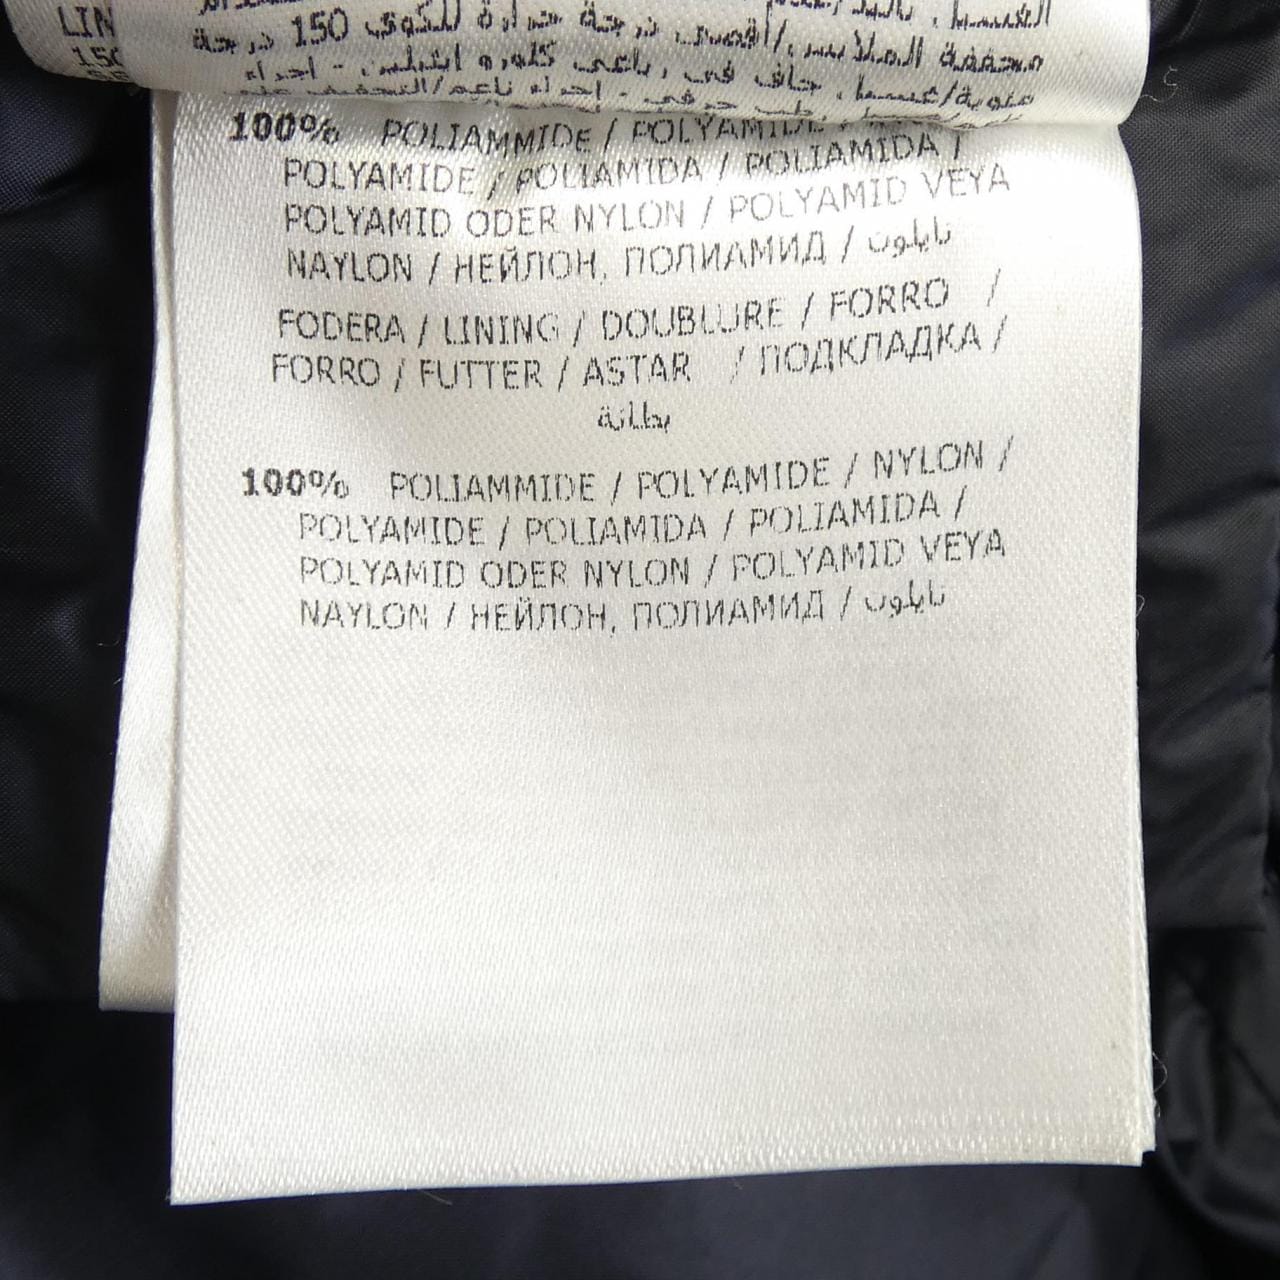 LIN
150
محففة الملابس./أقصى درجة حرارة للكوي 150 درجة
100% POLIAMMIDE / POLYAMIDE /
POLYAMIDE / POLIAMIDA / POLIAMIDA /
POLYAMID ODER NYLON / POLYAMID VEYA
NAYLON / НЕЙЛОН, ПОЛИАМИД / نايلون
FODERA / LINING / DOUBLURE / FORRO /
FORRO / FUTTER / ASTAR / ПОДКЛАДКА /
بطانة
100% POLIAMMIDE / POLYAMIDE / NYLON /
POLYAMIDE / POLIAMIDA / POLIAMIDA /
POLYAMID ODER NYLON / POLYAMID VEYA
NAYLON / НЕЙЛОН, ПОЛИАМИД / نايلون